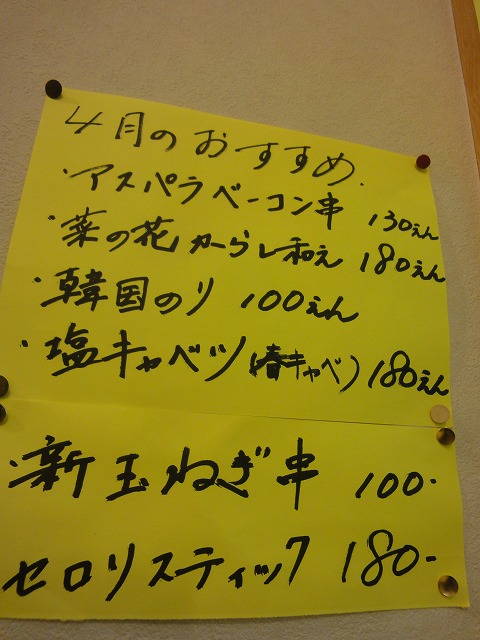 4月のおすすめ.
・アスパラベーコン串 130えん
・菜の花からし和え 180えん
・韓国のり 100えん
・塩キャベツ(春キャベ) 180えん
・新玉ねぎ串 100-
セロリスティック 180-